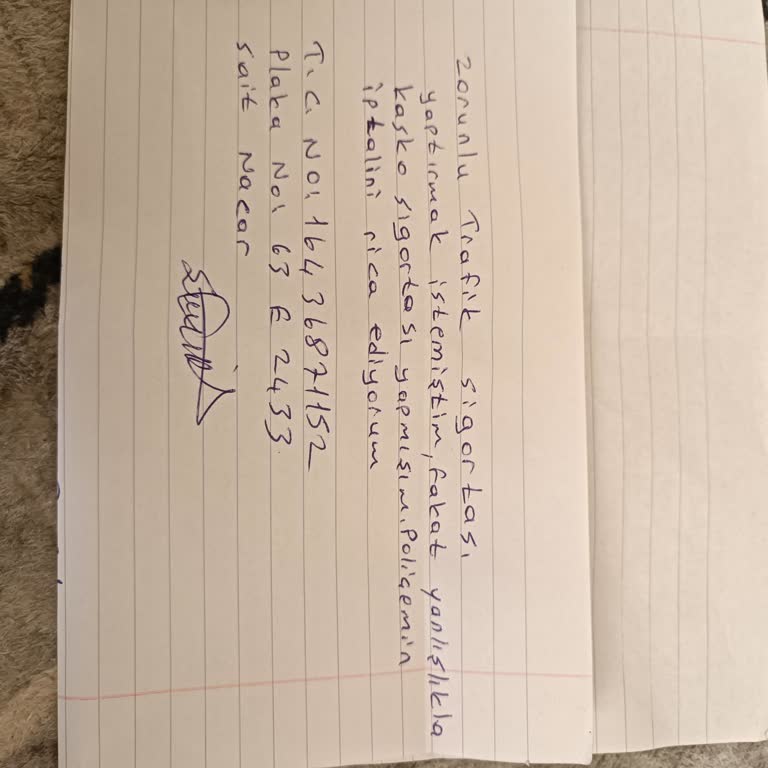 Zorunlu Trafik sigortası
yaptırmak istemiştim, fakat yanlışlıkla
kasko sigortası yapmışım. Poliçemin
iptalini rica ediyorum
T.C. No: 16436871152
Plaka No: 63 E 2433
Sait Nacar